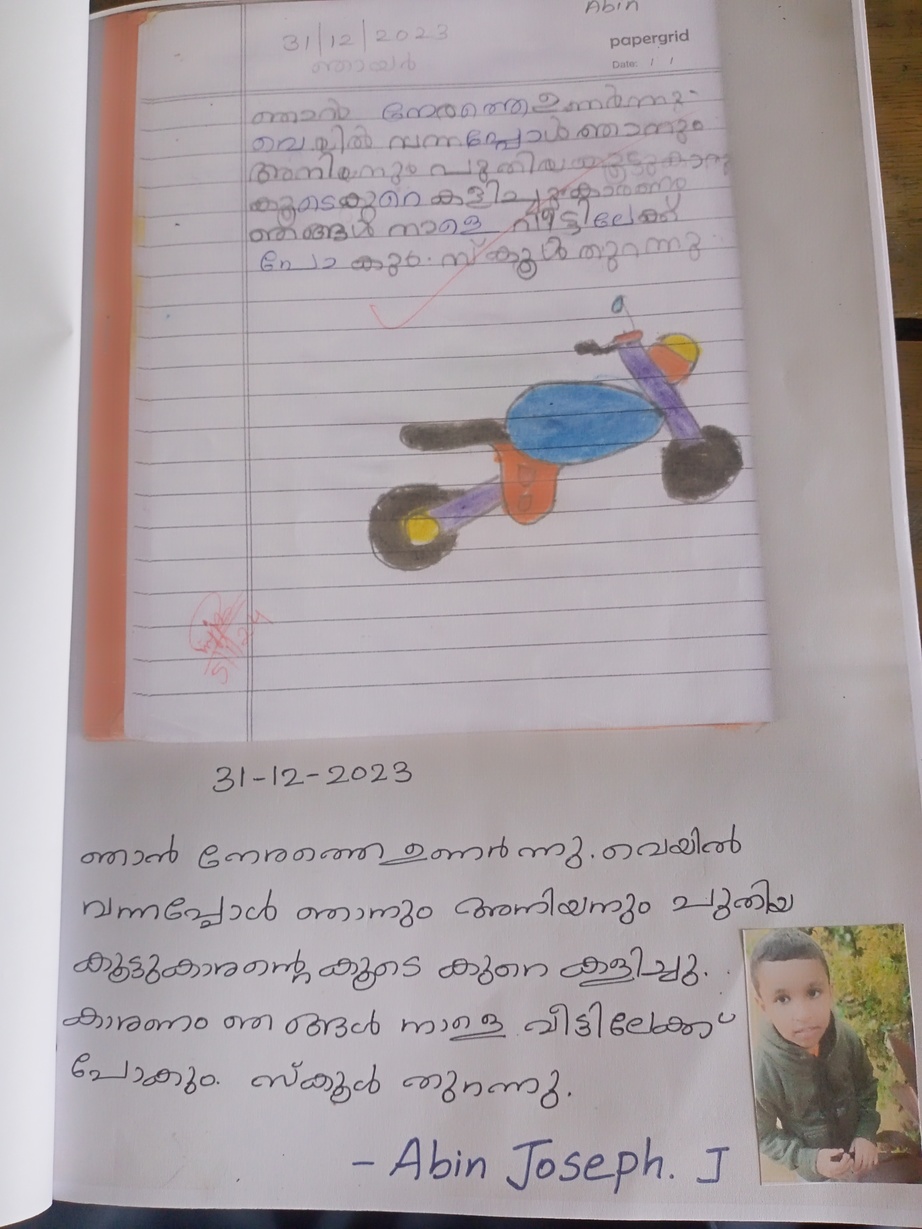 Abin
31/12/2023
papergrid
ഞായർ
Date: / /
ഞാൻ നേരത്തെ ഉണർന്നു.
വെയിൽ വന്നപ്പോൾ ഞാനും
അനിയനും പുതിയ കൂട്ടുകാര
കൂടെ കുറെ കളിച്ചു കാരണം
ഞങ്ങൾ നാളെ വീട്ടിലേക്ക്
പോകും. സ്കൂൾ തുറന്നു.
31-12-2023
ഞാൻ നേരത്തെ ഉണർന്നു. വെയിൽ
വന്നപ്പോൾ ഞാനും അനിയനും പുതിയ
കൂട്ടുകാരന്റെ കൂടെ കുറെ കളിച്ചു.
കാരണം ഞങ്ങൾ നാളെ വീട്ടിലേക്ക്
പോകും. സ്കൂൾ തുറന്നു.
- Abin Joseph. J